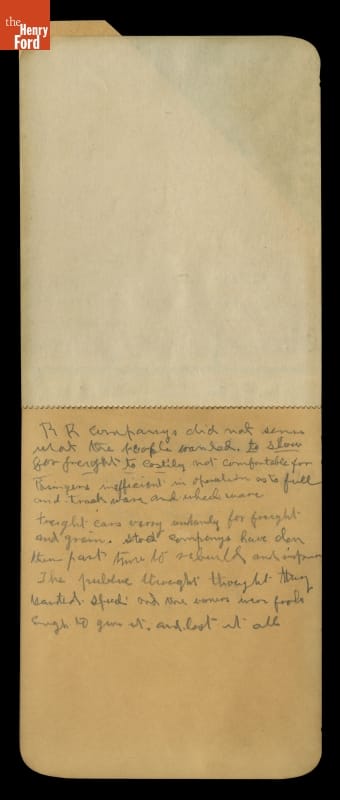 the
Henry
Ford
R R companys did not serve
what the people wanted. to slow
for freight to costily not comfortable for
inefficient in operation as to fuel
and track ware and wheel ware
freight cars verry unhandy for freight
and grain. companys have don
their part time to rebuild and
The publice thought they
wanted speed and the owners wer fools
enugh to give it. and lost it all